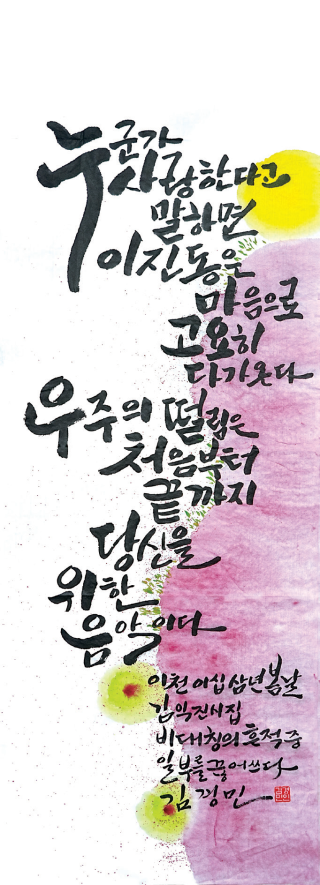 누군가
사랑한다고
말하면
이진동은
마음으로
고요히
다가온다
우주의 떨림은
처음부터
끝까지
당신을
위한
음악이다
이천이십삼년 봄날
김익진시집
비대칭의 흔적 중
일부를 끌어쓰다
김경민